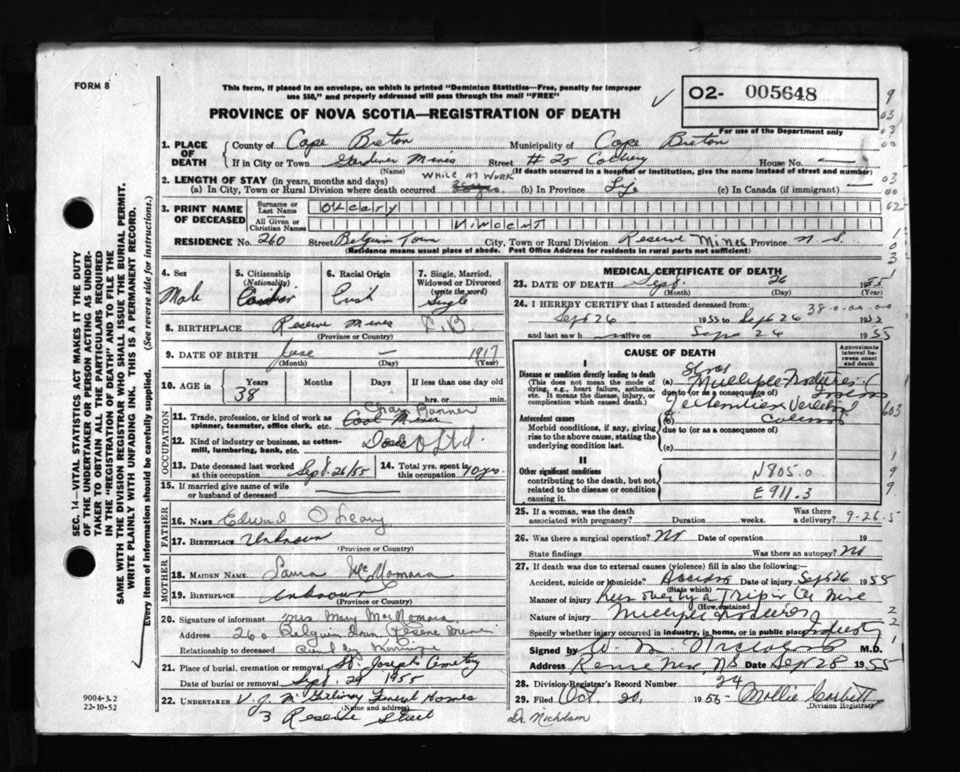 FORM 8
This form, if placed in an envelope, on which is printed "Dominion Statistics—Free, penalty for improper
use $50," and properly addressed will pass through the mail "FREE"
O2- 005648
For use of the Department only
PROVINCE OF NOVA SCOTIA—REGISTRATION OF DEATH
1. PLACE OF DEATH County of Cape Breton Municipality of Cape Breton
If in City or Town Gardiner Mines Street # 25 Colliery House No.
(Name) (If death occurred in a hospital or institution, give the name instead of street and number)
2. LENGTH OF STAY (in years, months and days) WHILE AT WORK
(a) In City, Town or Rural Division where death occurred (b) In Province Life (c) In Canada (if immigrant) —
3. PRINT NAME OF DECEASED Surname or Last Name OLeary
All Given or Christian Names VINCENT
RESIDENCE No. 260 Street Belgium Town City, Town or Rural Division Reserve Mines Province N.S.
(Residence means usual place of abode. Post Office Address for residents in rural parts not sufficient)
4. Sex Male
5. Citizenship (Nationality)
6. Racial Origin Irish
7. Single, Married, Widowed or Divorced (write the word) Single
8. BIRTHPLACE Reserve Mines C.B.
(Province or Country)
9. DATE OF BIRTH June — 1917
(Month) (Day) (Year)
10. AGE in Years 38 Months Days If less than one day old
hrs. or min.
OCCUPATION
11. Trade, profession, or kind of work as spinner, teamster, office clerk, etc. Coal Miner
12. Kind of industry or business, as cotton-mill, lumbering, bank, etc. Dosco Ltd.
13. Date deceased last worked at this occupation Sept. 26/55
14. Total yrs. spent in this occupation 10 yrs.
15. If married give name of wife or husband of deceased
FATHER
16. NAME Edward O'Leary
17. BIRTHPLACE Unknown
(Province or Country)
MOTHER
18. MAIDEN NAME Laura McNamara
19. BIRTHPLACE Unknown
(Province or Country)
20. Signature of informant Mrs Mary MacNamara
Address 260 Belgium Town Reserve Mines
Relationship to deceased Aunt by Marriage
21. Place of burial, cremation or removal St. Joseph's Cemetery
Date of burial or removal Sept. 29 1955
22. UNDERTAKER V. J. McGillivray Funeral Homes
(Name and address)
3 Reserve Street
MEDICAL CERTIFICATE OF DEATH
23. DATE OF DEATH Sept. 26 1955
(Month) (Day) (Year)
24. I HEREBY CERTIFY that I attended deceased from:
Sept 26 1955 to Sept 26 1955
and last saw h alive on Sept 26 1955
CAUSE OF DEATH
Approximate interval between onset and death
I
Disease or condition directly leading to death
(This does not mean the mode of dying, e.g., heart failure, asthenia, etc. It means the disease, injury, or complication which caused death.)
(a) Shock Multiple
due to (or as a consequence of)
Antecedent causes
Morbid conditions, if any, giving rise to the above cause, stating the underlying condition last.
(b)
due to (or as a consequence of)
(c)
II
Other significant conditions contributing to the death, but not related to the disease or condition causing it.
N805.0
E911.3
25. If a woman, was the death associated with pregnancy? Duration weeks. Was there a delivery? 9-26-5
26. Was there a surgical operation? No Date of operation 19
State findings Was there an autopsy? No
27. If death was due to external causes (violence) fill in also the following:—
Accident, suicide or homicide? Accident Date of injury Sept 26 1955
(State which)
Manner of injury Run over by a Trip in Coal Mine
(How sustained)
Nature of injury Multiple
Specify whether injury occurred in industry, in home, or in public place Industry
Signed by M.D.
Address Reserve Mines NS Date Sept 28 1955
28. Division Registrar's Record Number 24
29. Filed Oct 20, 1955 Mollie Corbett
Division Registrar
Dr. Nicholson
SEC. 14—VITAL STATISTICS ACT MAKES IT THE DUTY
OF THE UNDERTAKER OR PERSON ACTING AS UNDER-
TAKER TO OBTAIN ALL THE PARTICULARS REQUIRED
IN THE "REGISTRATION OF DEATH" AND TO FILE THE
SAME WITH THE DIVISION REGISTRAR WHO SHALL ISSUE THE BURIAL PERMIT.
WRITE PLAINLY WITH UNFADING INK. THIS IS A PERMANENT RECORD.
Every item of information should be carefully supplied. (See reverse side for instructions.)
9004-3.2
22-10-52